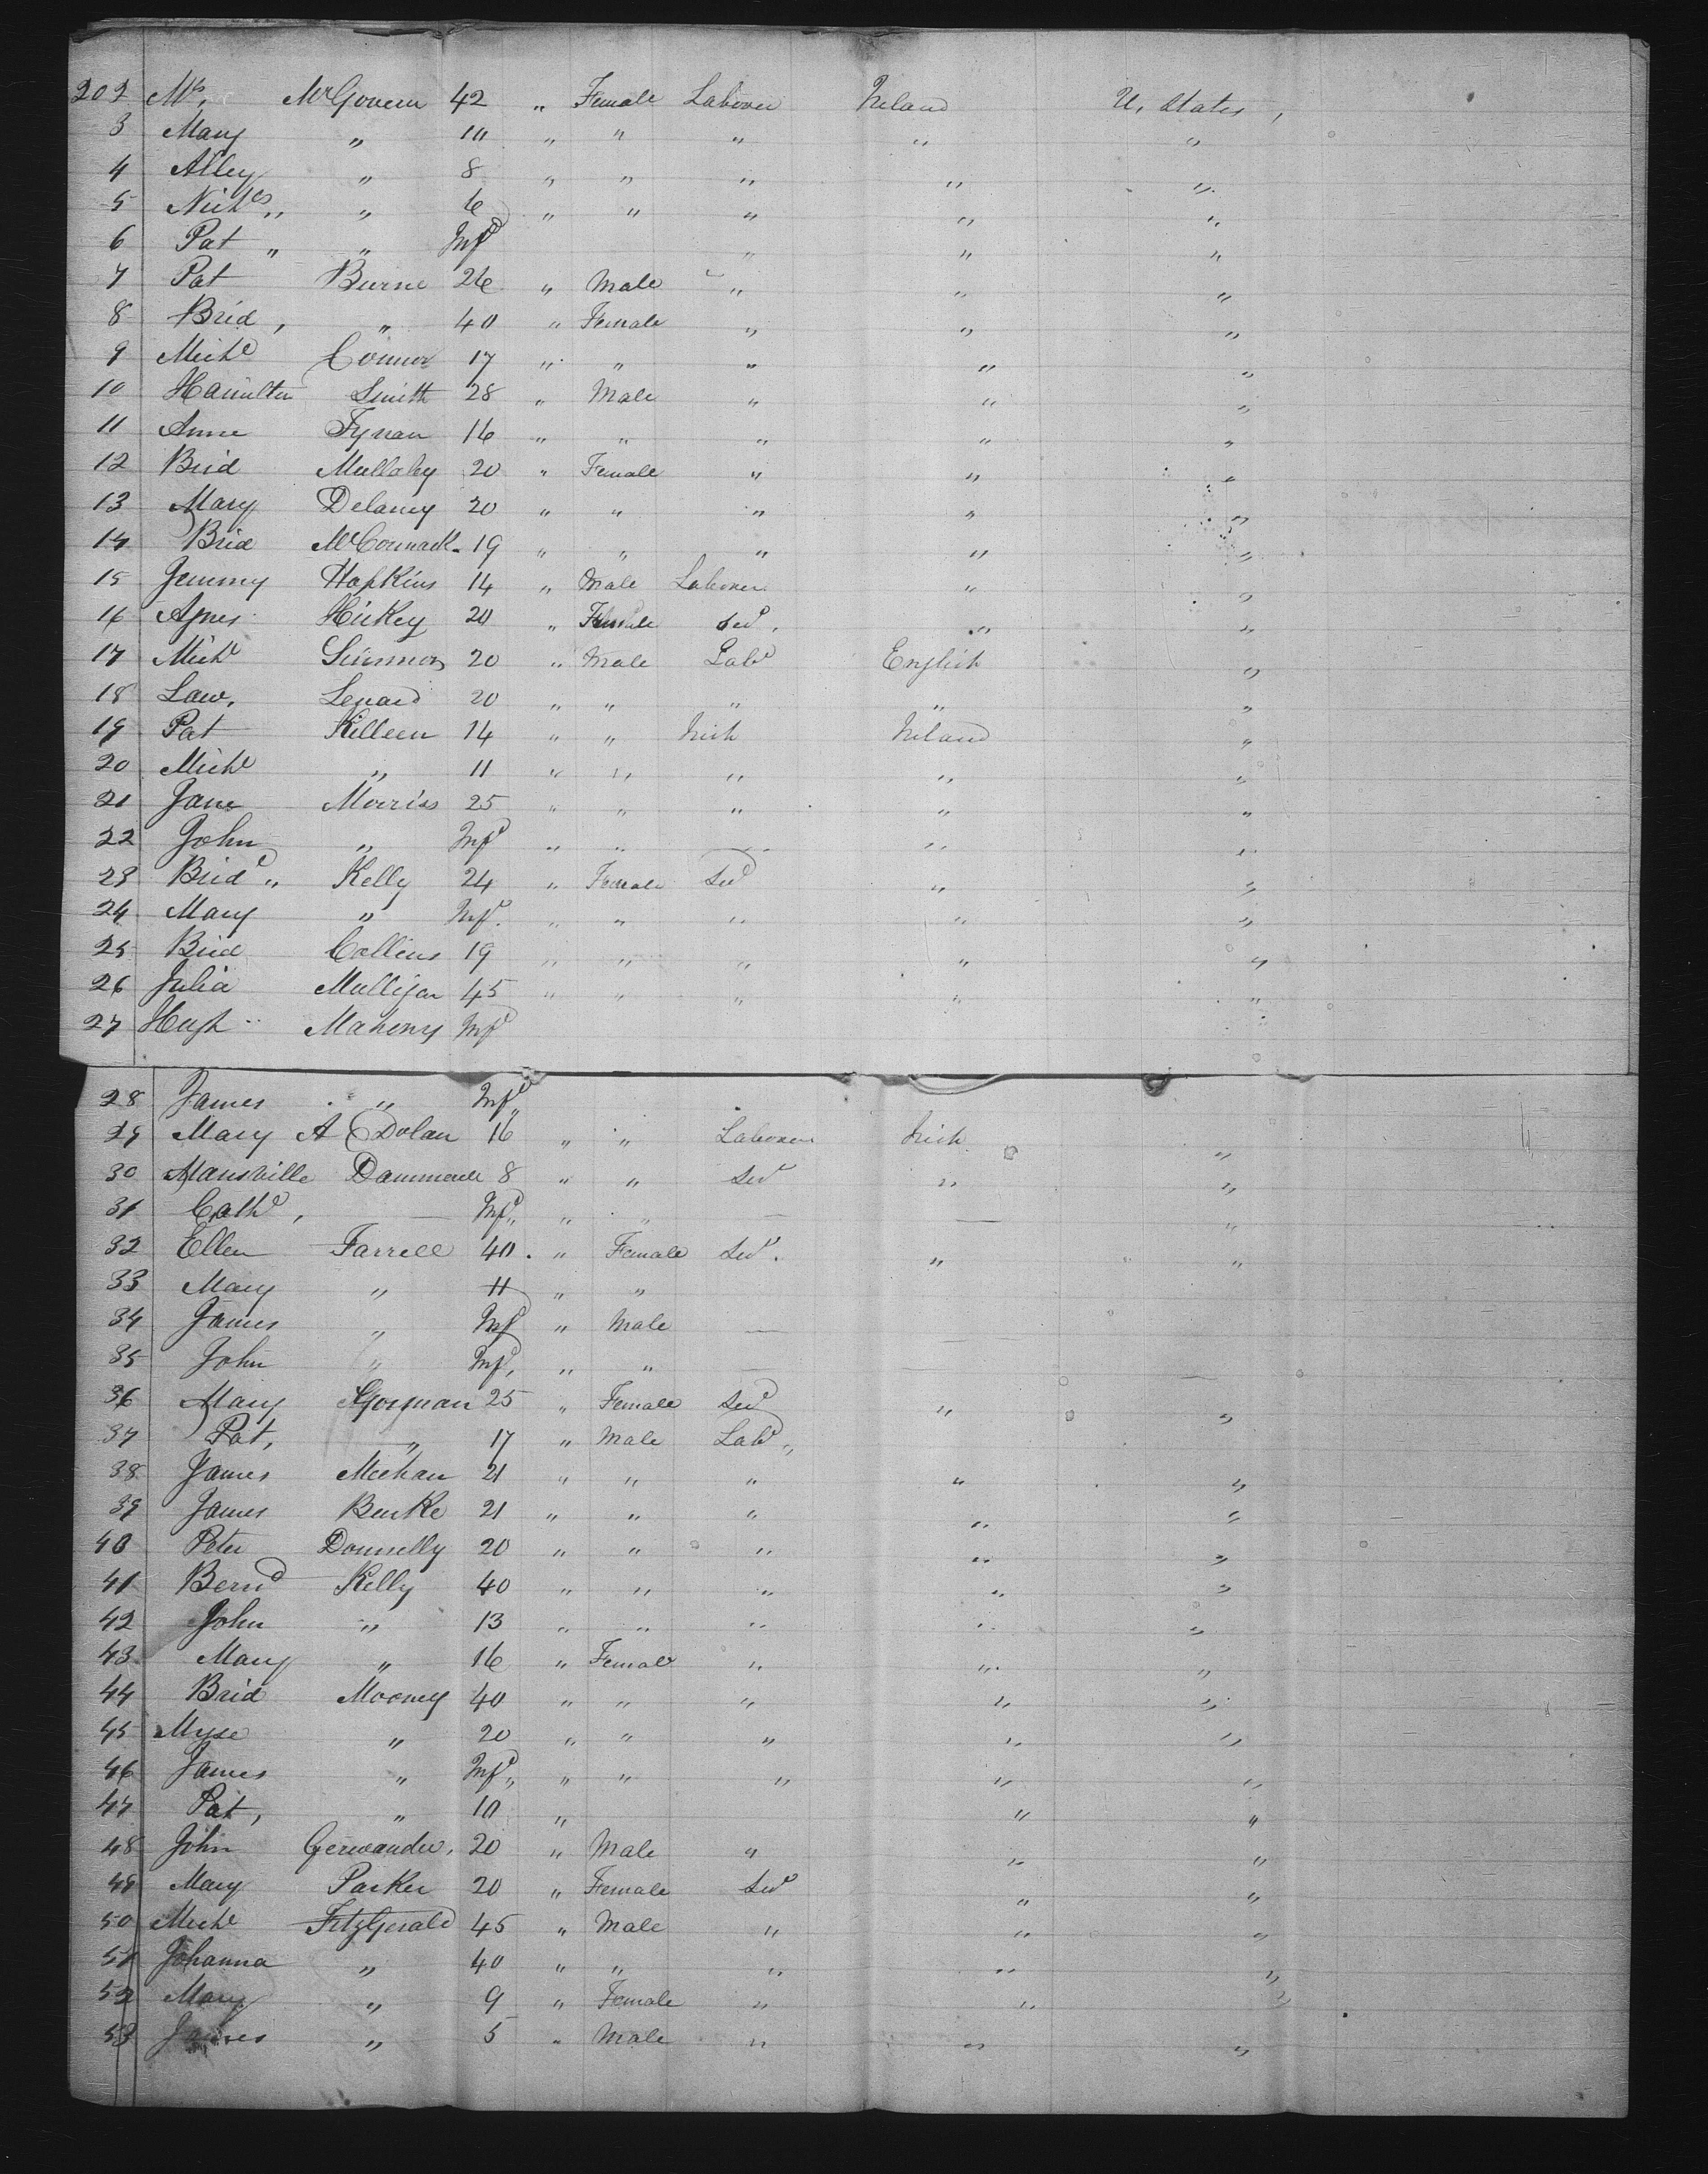 202 Mrs, McGovern 42 " Female Laborer Ireland U, States,
3 Mary " 10 " " " " "
4 Alley " 8 " " " " "
5 Nichs,, " 6 " " " " "
6 Pat " " Inft " " "
7 Pat Burne 26 " Male " " "
8 Brid, " 40 " Female " " "
9 Michl Connor 17 " " " " "
10 Hamilton Smith 28 " Male " " "
11 Anne Tynan 16 " " " " "
12 Brid Mullahy 20 " Female " " "
13 Mary Delaney 20 " " " " "
14 Brid McCormack 19 " " " " "
15 Jemmy Hopkins 14 " Male Laborer " "
16 Agnes Hickey 20 " Female Sert, " "
17 Michl Simmon 20 " Male Labr English "
18 Law, Lenard 20 " " " " "
19 Pat Killeen 14 " " Irish Ireland "
20 Michl " 11 " " " " "
21 Jane Morriss 25 " " " " "
22 John " Inft " " " "
23 Brid " Kelly 24 " Female Sert " "
24 Mary " Inft. " " " " "
25 Brid Collins 19 " " " " "
26 Julia Mulligan 45 " " " " "
27 Hugh Mahony Inft
28 James " Inft
29 Mary A Dolan 16 " " Laborer Irish "
30 Mansville 8 " " Sert " "
31 Cathe, — Inft " " — — "
32 Ellen Farrell 40. " Female Sert. " "
33 Mary " 11 " "
34 James " Inft " Male —
35 John " Inft, " " —
36 Mary Gorman 25 " Female Sert " "
37 Pat, " 17 " Male Labr "
38 James Meehan 21 " " " " "
39 James Burke 21 " " " " "
40 Peter Donnelly 20 " " " " "
41 Bernd Kelly 40 " " " " "
42 John " 13 " " " " "
43 Mary " 16 " Female " " "
44 Brid Mooney 40 " " " " "
45 Myse " 20 " " " " "
46 James " Inft " " " " "
47 Pat, " 10 " " "
48 John 20 " Male " " "
49 Mary Parker 20 " Female Sert " "
50 Michl FitzGerald 45 " Male " " "
51 Johanna " 40 " " " " "
52 Mary " 9 " Female " " "
53 James " 5 " Male " " "